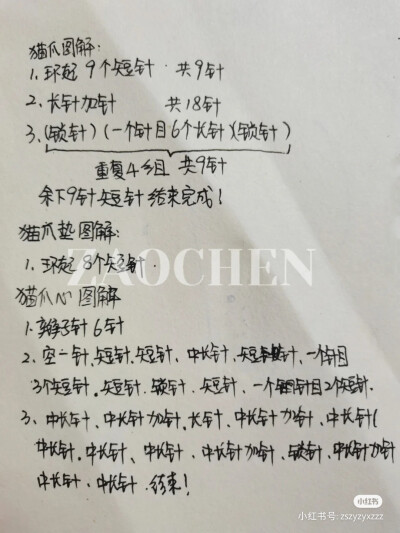 猫爪图解:
1. 环起 9个短针 . 共9针
2. 长针加针 共18针
3. (锁针) (一个针目6个长针)(锁针)
重复4组 共9针
余下9针短针结束完成!
猫爪垫图解:
1. 环起 8个短针 .
ZAOCHEN
猫爪心图解
1. 辫子针 6针
2. 空一针、短针、短针、中长针、一个针目
3个短针、短针、锁针、短针、一个针目2个短针.
3、中长针、中长针加针、长针、中长针加针、中长针(
中长针、中长针、中长针、中长针加针、锁针、中长针加针
中长针、中长针、结束!
小红书
小红书号: zszyzyxzzz